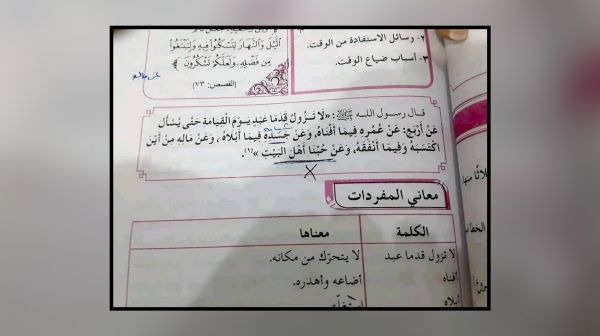 ٢- وسائل الاستفادة من الوقت.
٣- أسباب ضياع الوقت.
الَّيْلَ وَالنَّهَارَ لِتَسْكُنُوا فِيهِ وَلِتَبْتَغُوا
مِن فَضْلِهِ وَلَعَلَّكُمْ تَشْكُرُونَ ﴾
(القصص: ٧٣)
قال رسول الله ﷺ: «لَا تَزُولُ قَدَمَا عَبْدٍ يَوْمَ الْقِيَامَةِ حَتَّى يُسْأَلَ
عَنْ أَرْبَعٍ: عَنْ عُمُرِهِ فِيمَا أَفْنَاهُ، وَعَنْ جَسَدِهِ فِيمَا أَبْلَاهُ، وَعَنْ مَالِهِ مِنْ أَيْنَ
اكْتَسَبَهُ وَفِيمَا أَنْفَقَهُ، وَعَنْ حُبِّنَا أَهْلَ الْبَيْتِ»(١).
معاني المفردات
الكلمة معناها
لا تزول قدما عبد لا يتحرّك من مكانه.
أفناه أضاعه وأهدره.
أبلاه